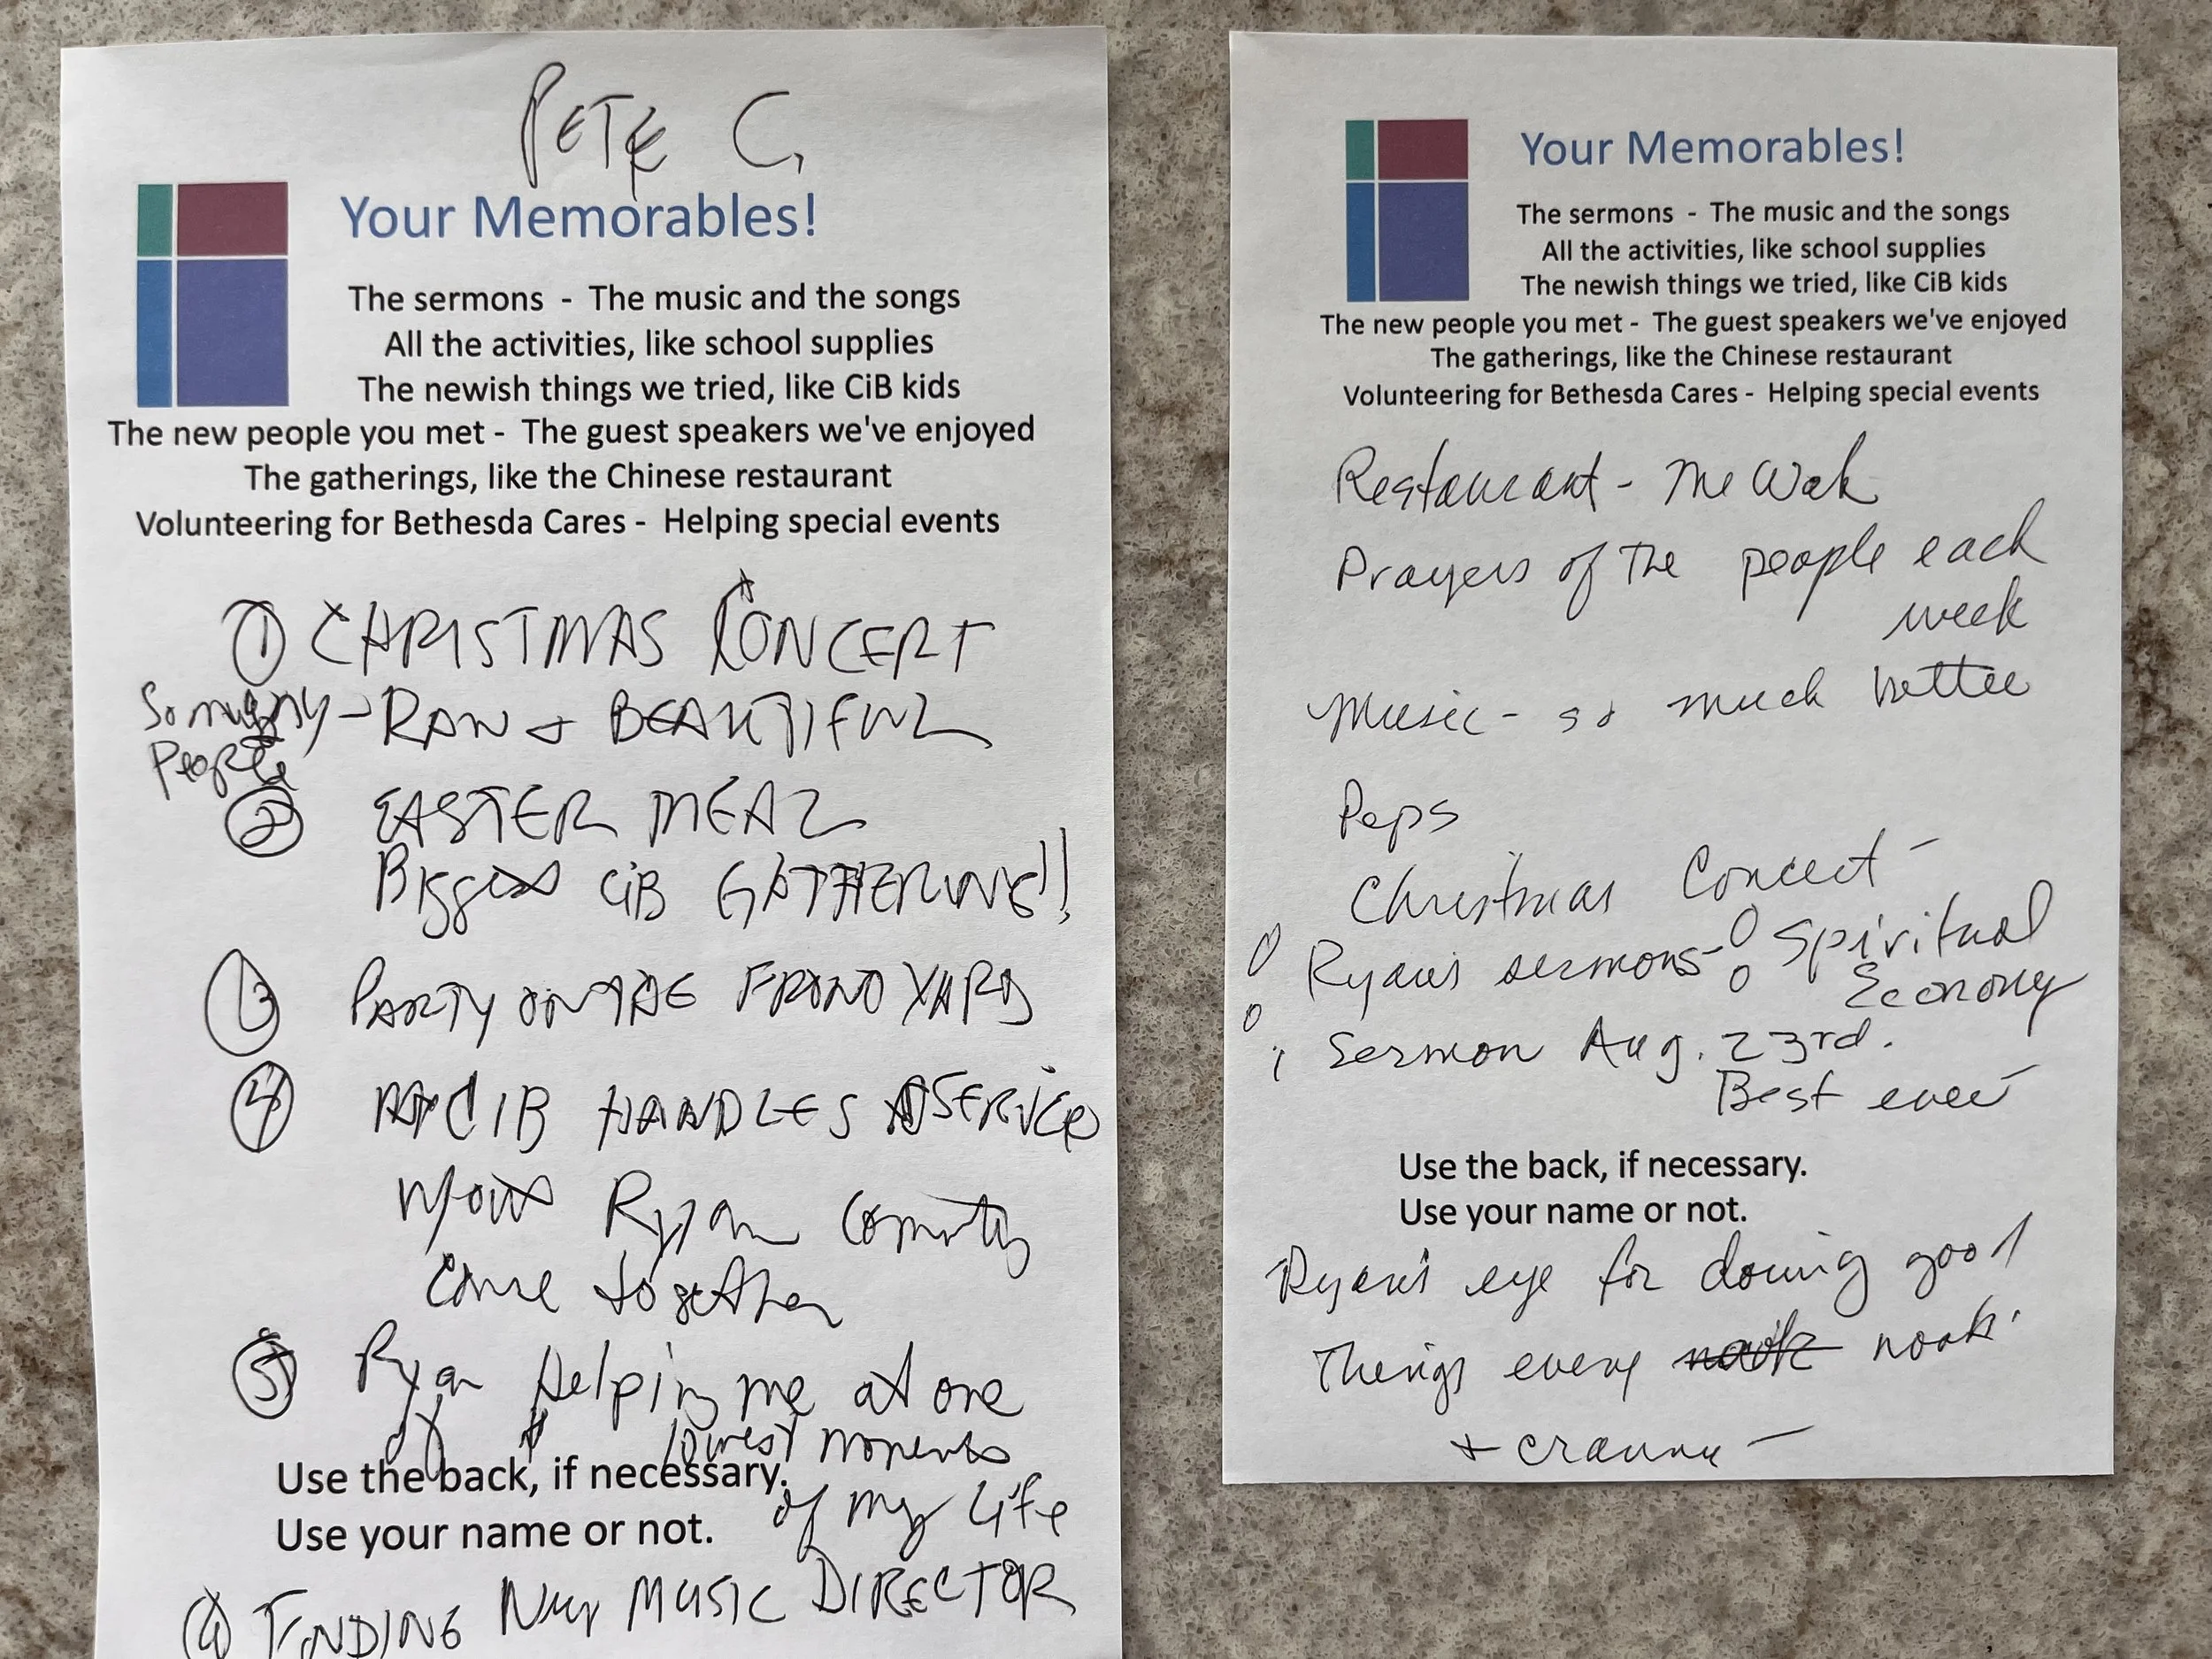 PETE C.
Your Memorables!
The sermons - The music and the songs
All the activities, like school supplies
The newish things we tried, like CiB kids
The new people you met - The guest speakers we've enjoyed
The gatherings, like the Chinese restaurant
Volunteering for Bethesda Cares - Helping special events
① CHRISTMAS CONCERT
So many - RAW + BEAUTIFUL
People
② EASTER MEAL
Biggest CiB GATHERING!!
③ PARTY ON THE FRONT YARD
④ CIB HANDLES SERVICE
w/out Ryan
Come together
⑤ Ryan Helping me at one
of lowest moments
Use the back, if necessary.
of my life
Use your name or not.
FINDING New MUSIC DIRECTOR
Your Memorables!
The sermons - The music and the songs
All the activities, like school supplies
The newish things we tried, like CiB kids
The new people you met - The guest speakers we've enjoyed
The gatherings, like the Chinese restaurant
Volunteering for Bethesda Cares - Helping special events
Restaurant - The Wok
Prayers of The people each
week
Music - so much better
Peps
Christmas Concert -
Ryan's sermons - Spiritual
Economy
Sermon Aug. 23rd.
Best ever
Use the back, if necessary.
Use your name or not.
Ryan's eye for doing good
Things every nook
+ cranny -